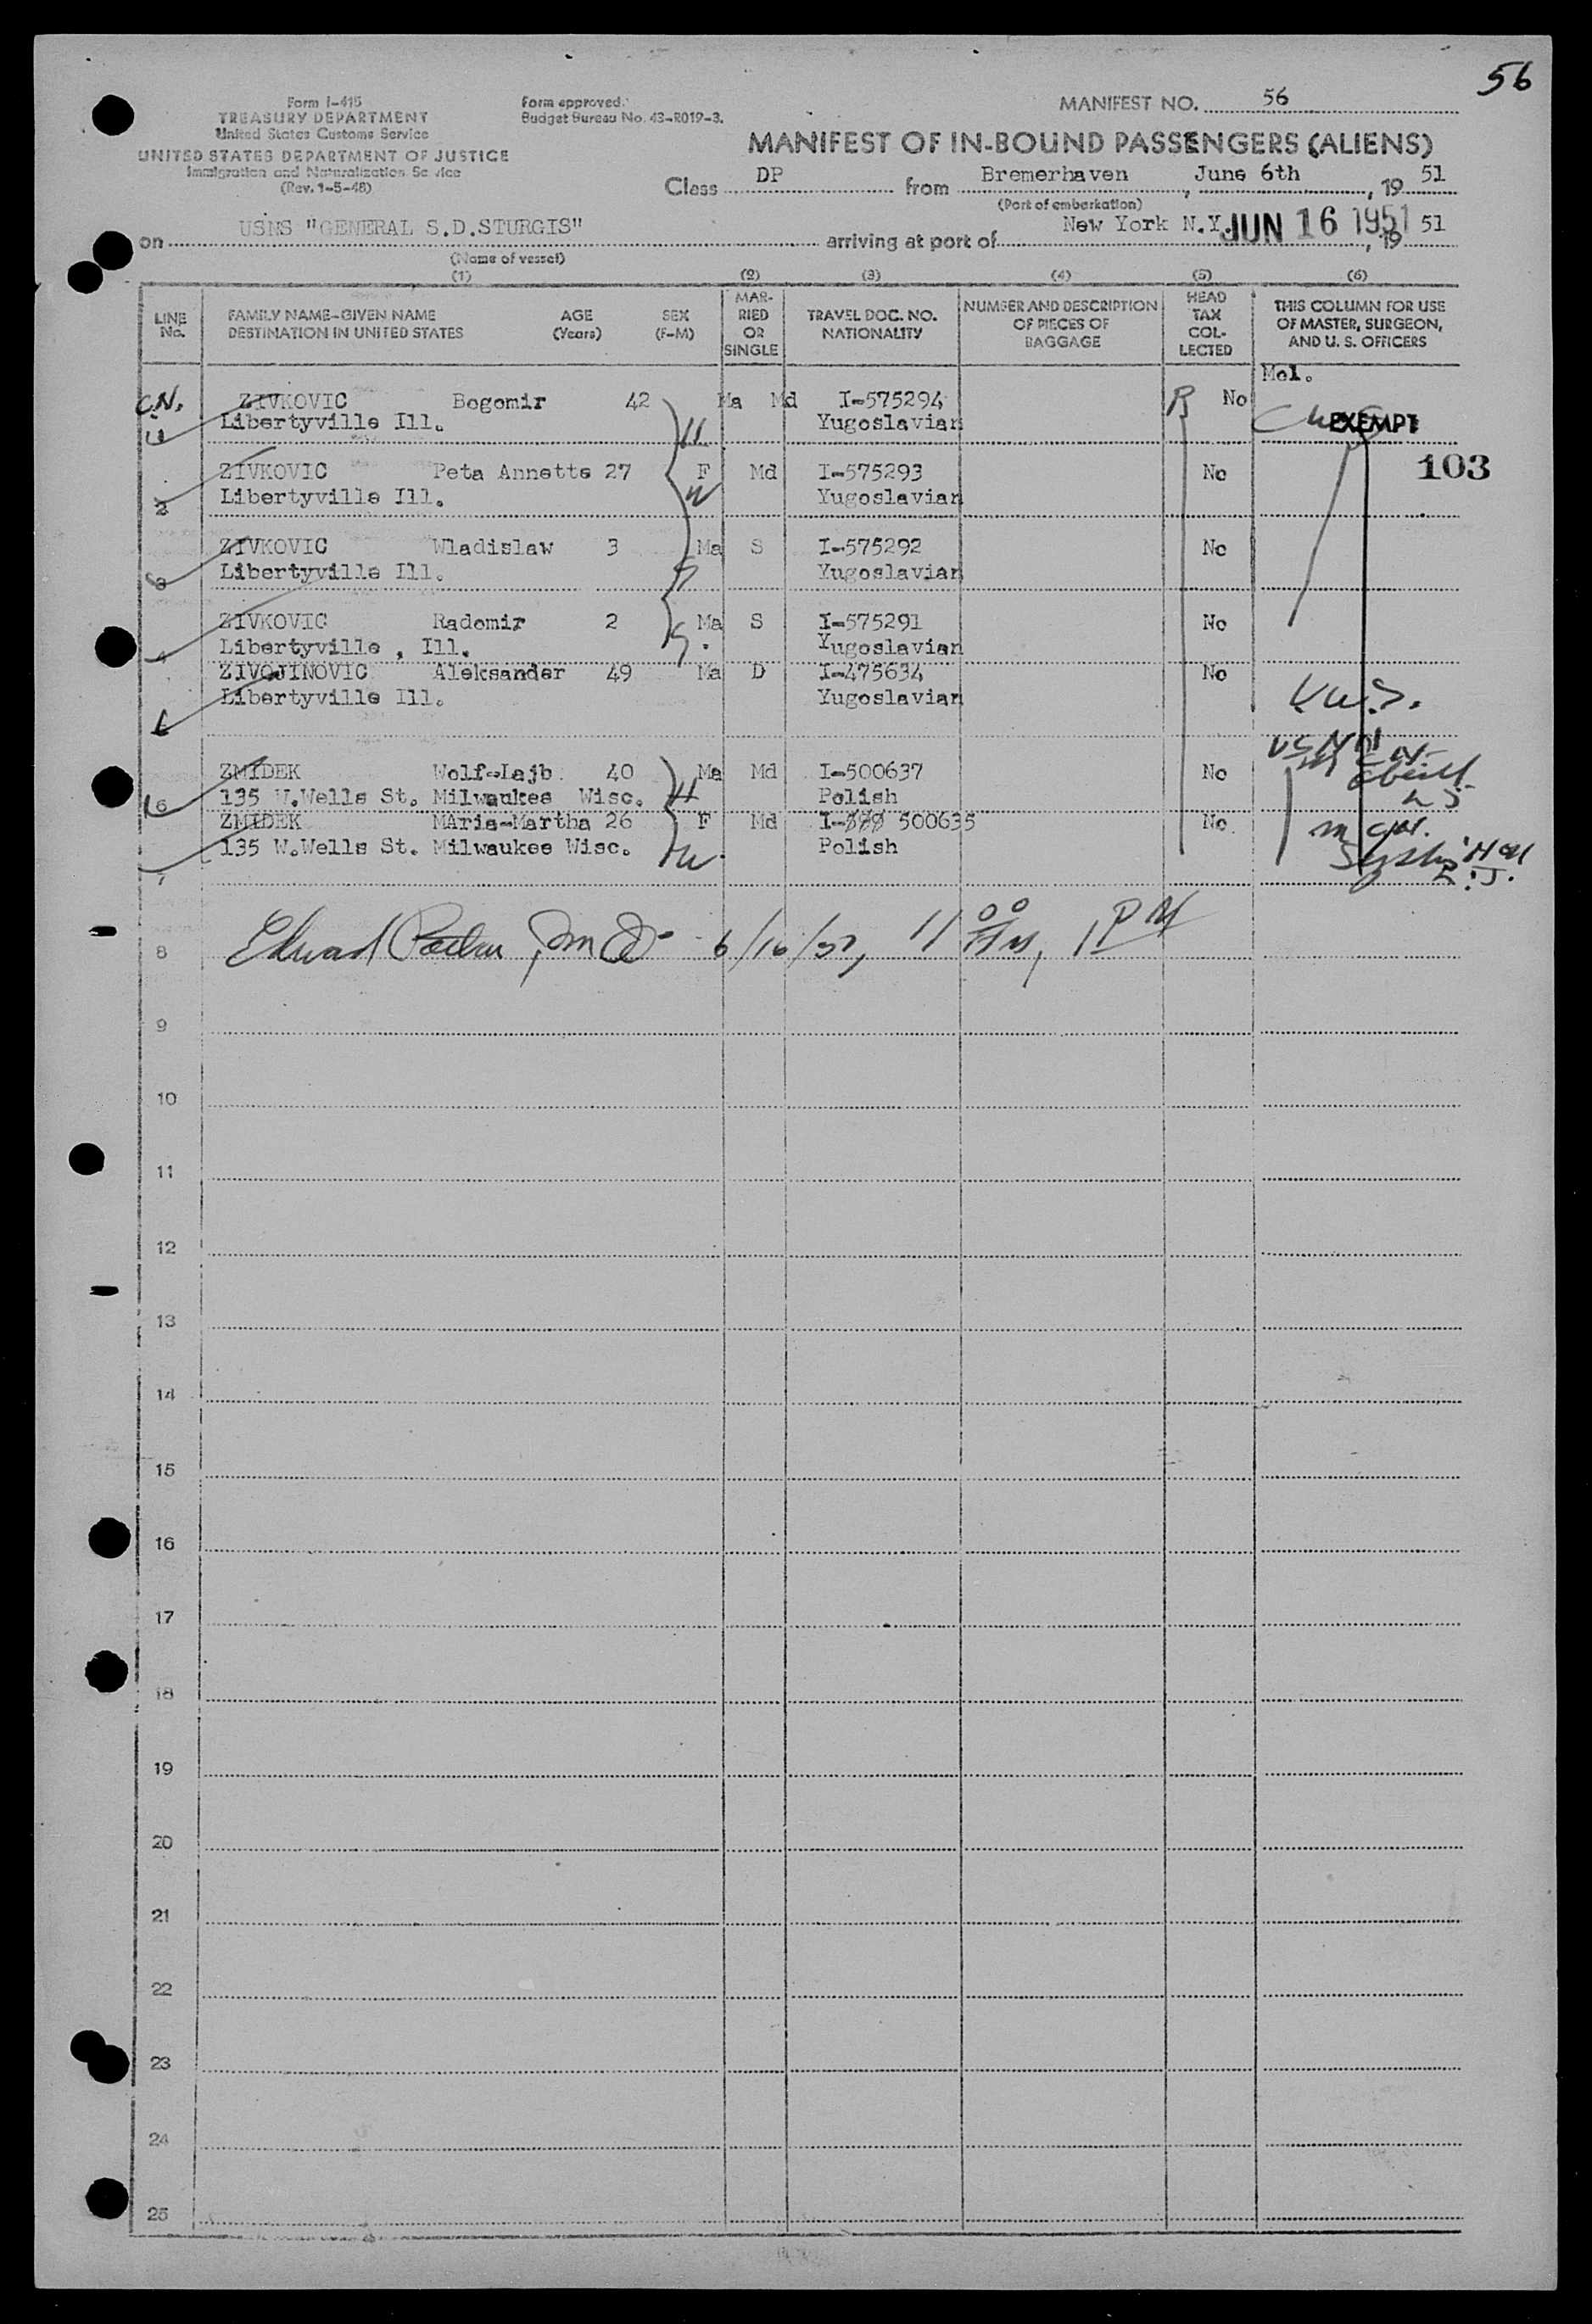 56
Form I-415
TREASURY DEPARTMENT
United States Customs Service
UNITED STATES DEPARTMENT OF JUSTICE
Immigration and Naturalization Service
(Rev. 1-5-48)
Form approved.
Budget Bureau No. 43-R019-3.
MANIFEST NO. 56
MANIFEST OF IN-BOUND PASSENGERS (ALIENS)
Class DP from Bremerhaven, June 6th, 19 51
(Port of embarkation)
on USNS "GENERAL S.D.STURGIS" arriving at port of New York N.Y. JUN 16 1951, 19 51
(Name of vessel)
(1) (2) (3) (4) (5) (6)
LINE No. FAMILY NAME-GIVEN NAME DESTINATION IN UNITED STATES AGE (Years) SEX (F-M) MARRIED OR SINGLE TRAVEL DOC. NO. NATIONALITY NUMBER AND DESCRIPTION OF PIECES OF BAGGAGE HEAD TAX COLLECTED THIS COLUMN FOR USE OF MASTER, SURGEON, AND U. S. OFFICERS
Mol.
C.N. ZIVKOVIC Bogomir 42 Ma Md I-575294 No
Libertyville Ill. H Yugoslavian EXEMPT
103
ZIVKOVIC Peta Annette 27 F Md I-575293 No
2 Libertyville Ill. W Yugoslavian
ZIVKOVIC Wladislaw 3 Ma S I-575292 No
3 Libertyville Ill. S Yugoslavian
ZIVKOVIC Radomir 2 Ma S I-575291 No
4 Libertyville , Ill. S. Yugoslavian
ZIVOJINOVIC Aleksander 49 Ma D I-475634 No
Libertyville Ill. Yugoslavian
ZMIDEK Wolf-Lajb 40 Ma Md I-500637 No
6 135 W.Wells St. Milwaukee Wisc. H Polish
ZMIDEK MAria-Martha 26 F Md I- 500635 No
135 W.Wells St. Milwaukee Wisc. W. Polish
7
8 Edward 6/16/51, 11 00 AM, 1 PM
9
10
11
12
13
14
15
16
17
18
19
20
21
22
23
24
25